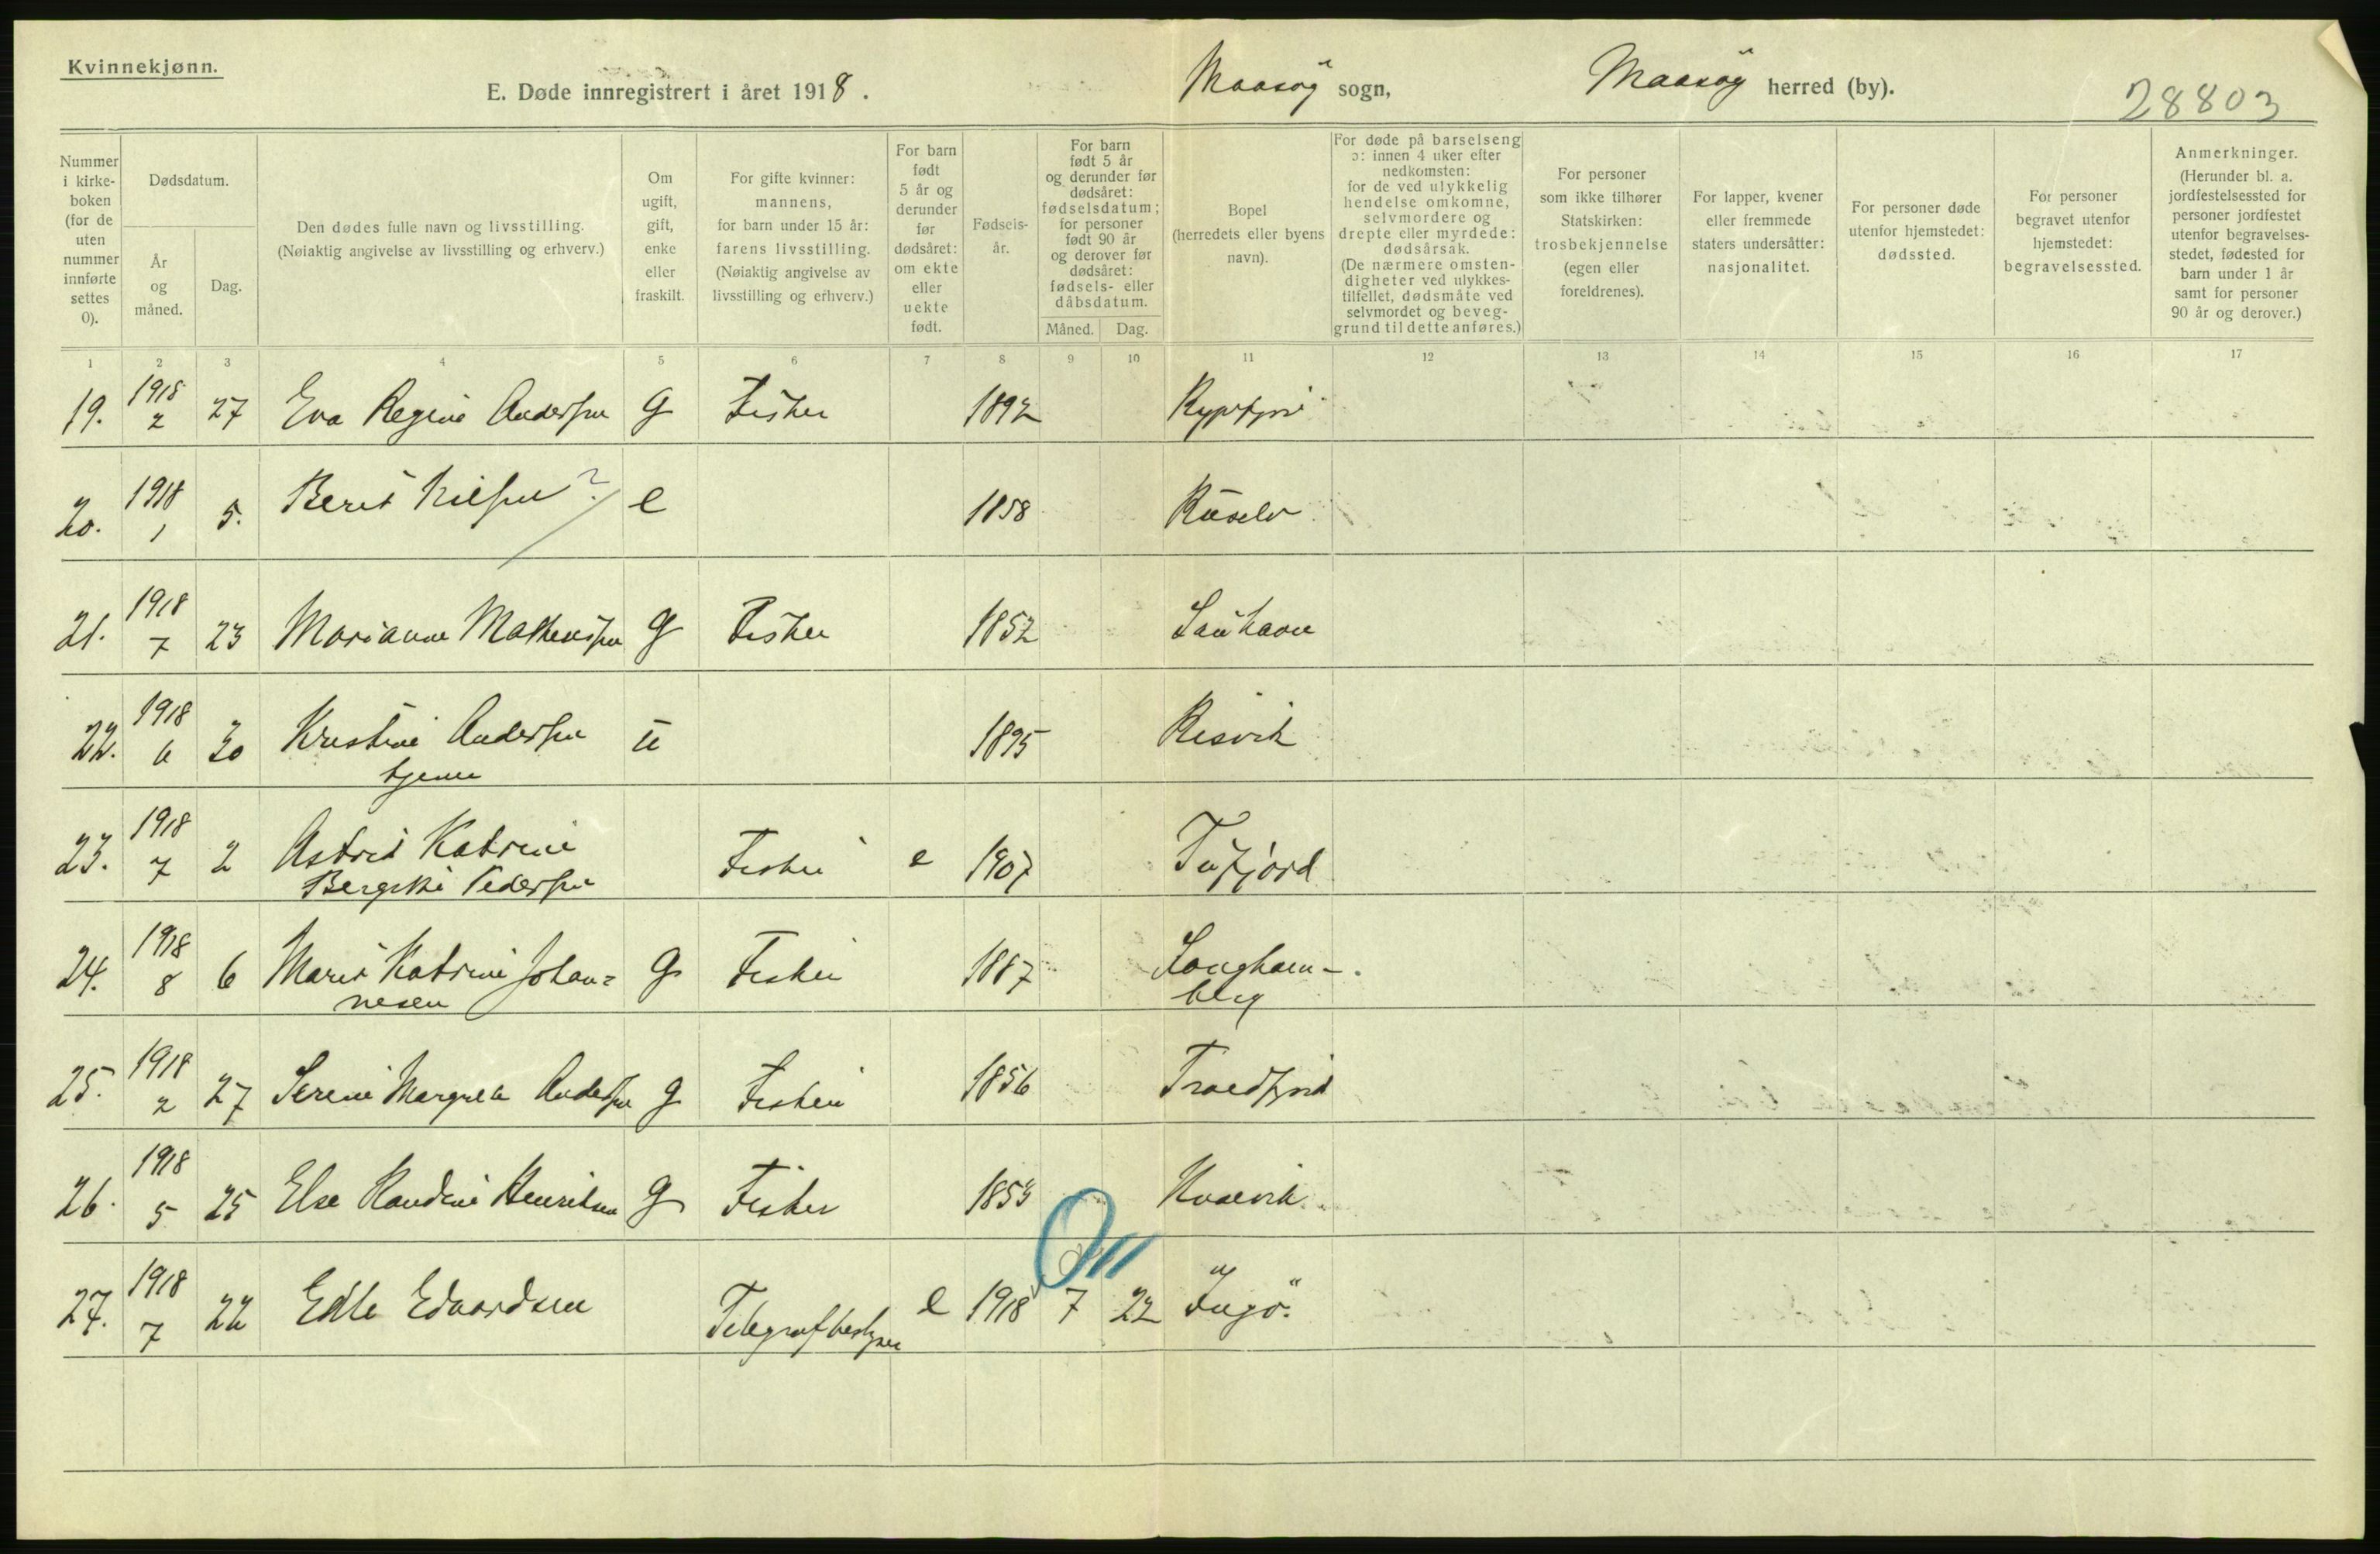 Kvinnekjønn.
E. Døde innregistrert i året 1918. Maasøy sogn, Maasøy herred (by). 28803
Nummer i kirke-boken (for de uten nummer innførte settes 0).
Dødsdatum.
År og måned.
Dag.
Den dødes fulle navn og livsstilling.
(Nøiaktig angivelse av livsstilling og erhverv.)
Om ugift, gift, enke eller fraskilt.
For gifte kvinner: mannens, for barn under 15 år: farens livsstilling.
(Nøiaktig angivelse av livsstilling og erhverv.)
For barn født 5 år og derunder før dødsåret: om ekte eller uekte født.
Fødsels-år.
For barn født 5 år og derunder før dødsåret: fødselsdatum; for personer født 90 år og derover før dødsåret: fødsels- eller dåbsdatum.
Måned. Dag.
Bopel (herredets eller byens navn).
For døde på barselseng ɔ: innen 4 uker efter nedkomsten: for de ved ulykkelig hendelse omkomne, selvmordere og drepte eller myrdede: dødsårsak.
(De nærmere omsten-digheter ved ulykkes-tilfellet, dødsmåte ved selvmordet og beveg-grund til dette anføres.)
For personer som ikke tilhører Statskirken: trosbekjennelse (egen eller foreldrenes).
For lapper, kvener eller fremmede staters undersåtter: nasjonalitet.
For personer døde utenfor hjemstedet: dødssted.
For personer begravet utenfor hjemstedet: begravelsessted.
Anmerkninger.
(Herunder bl. a. jordfestelsessted for personer jordfestet utenfor begravelses-stedet, fødested for barn under 1 år samt for personer 90 år og derover.)
1 2 3 4 5 6 7 8 9 10 11 12 13 14 15 16 17
19. 1918 2 27 Eva Regine Andersen g Fisker 1892
20. 1918 1 5. Berit Nilsen ? e 1858
21. 1918 7 23 Marianne Mathensen g Fisker 1852 Sanhavn
22. 1918 6 30 Kristine Andersen u 1895 Risvik
tjener
23. 1918 7 2 Astrid Katrine Fisker e 1907 Tufjord
Pedersen
24. 1918 8 6 Marit Katrine Johan= g Fisker 1887
nesen
25. 1918 2 27 Serine Margrete Andersen g Fisker 1856
26. 1918 5 25 Else Randine Henriksen g Fisker 1853 Kvalvik
27. 1918 7 22 Edle Edvardsen Telegrafbestyrer e 1918 7 22 Ingö.